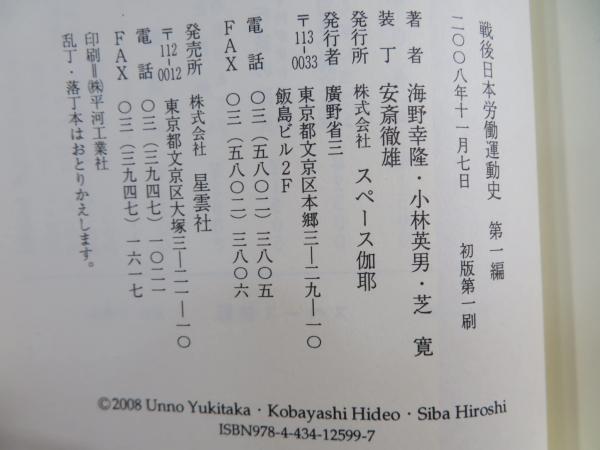 戦後日本労働運動史　第一編
二〇〇八年十一月七日　初版第一刷
著者　海野幸隆・小林英男・芝　寛
装丁　安斎徹雄
発行所　株式会社　スペース伽耶
発行者　廣野省三
〒113-0033　東京都文京区本郷三―二九―一〇
飯島ビル2F
電話　〇三（五八〇二）三八〇五
FAX　〇三（五八〇二）三八〇六
発売所　株式会社　星雲社
〒112-0012　東京都文京区大塚三―二一―一〇
電話　〇三（三九四七）一〇二一
FAX　〇三（三九四七）一六一七
印刷＝㈱平河工業社
乱丁・落丁本はおとりかえします。
©2008 Unno Yukitaka・Kobayashi Hideo・Siba Hiroshi
ISBN978-4-434-12599-7